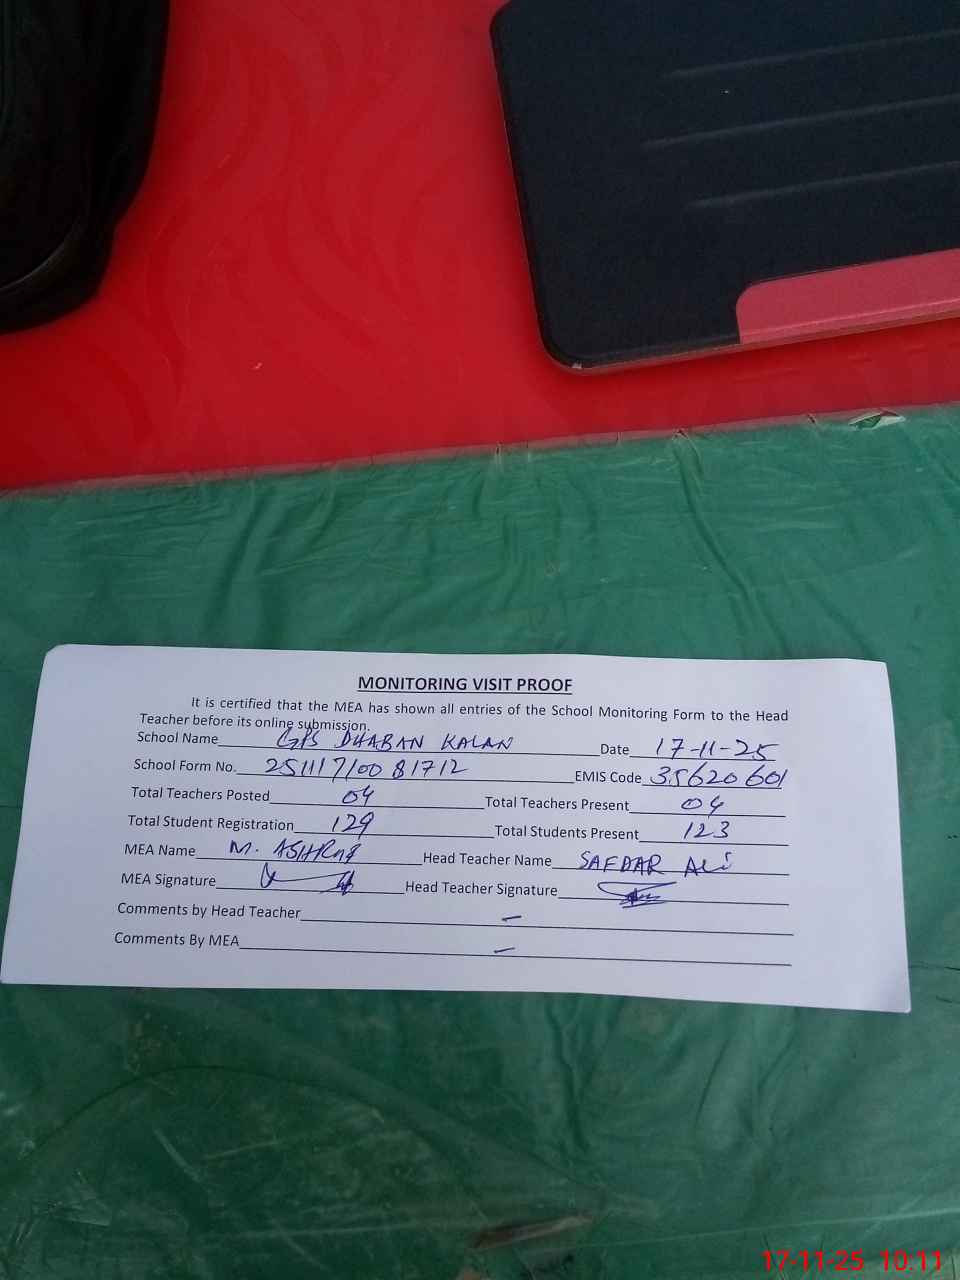 MONITORING VISIT PROOF
It is certified that the MEA has shown all entries of the School Monitoring Form to the Head
Teacher before its online submission.
School Name GPS DHABAN KALAN Date 17-11-25
School Form No. 25111710081712 EMIS Code 35620601
Total Teachers Posted 04 Total Teachers Present 04
Total Student Registration 129 Total Students Present 123
MEA Name M. ASHRAF Head Teacher Name SAFDAR ALi
MEA Signature Head Teacher Signature
Comments by Head Teacher –
Comments By MEA –
17-11-25 10:11